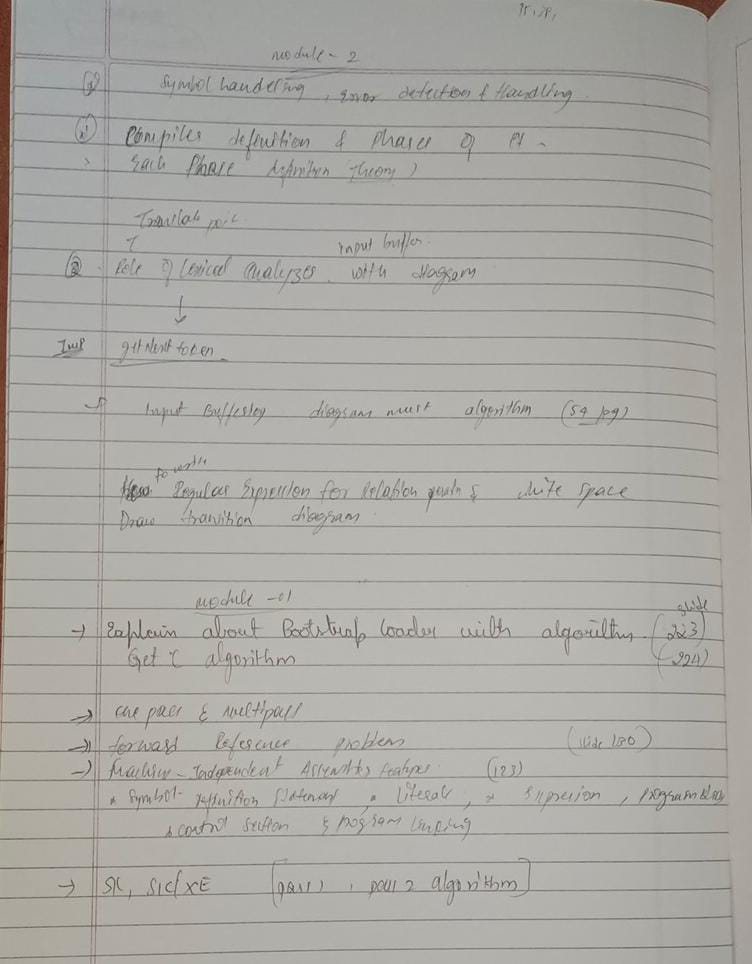 module - 2
Symbol handeling, Error detection & Handling.
Compiler definition & Phases of it -
Each Phase definition Theory)
input buffer.
② Role of Lexical Analyzer. with diagram
↓
Imp get Next token
→ Input Buffering diagram must algorithm (54 pg)
to write
How Regular Expression for Relation & white space
Draw transition diagram
module - 01
slide
→ Explain about Bootstrap Loader with algorithm. (223)
Get C algorithm (224)
→ One pass & multipass
→ forward Reference problem (slide 130)
→ Machine - Independent Assembler features (123)
* Symbol definition Statement * Literals, * Expresion, program block
* control section & program linking
→ SIC, SIC/XE [pass 1, pass 2 algorithm]